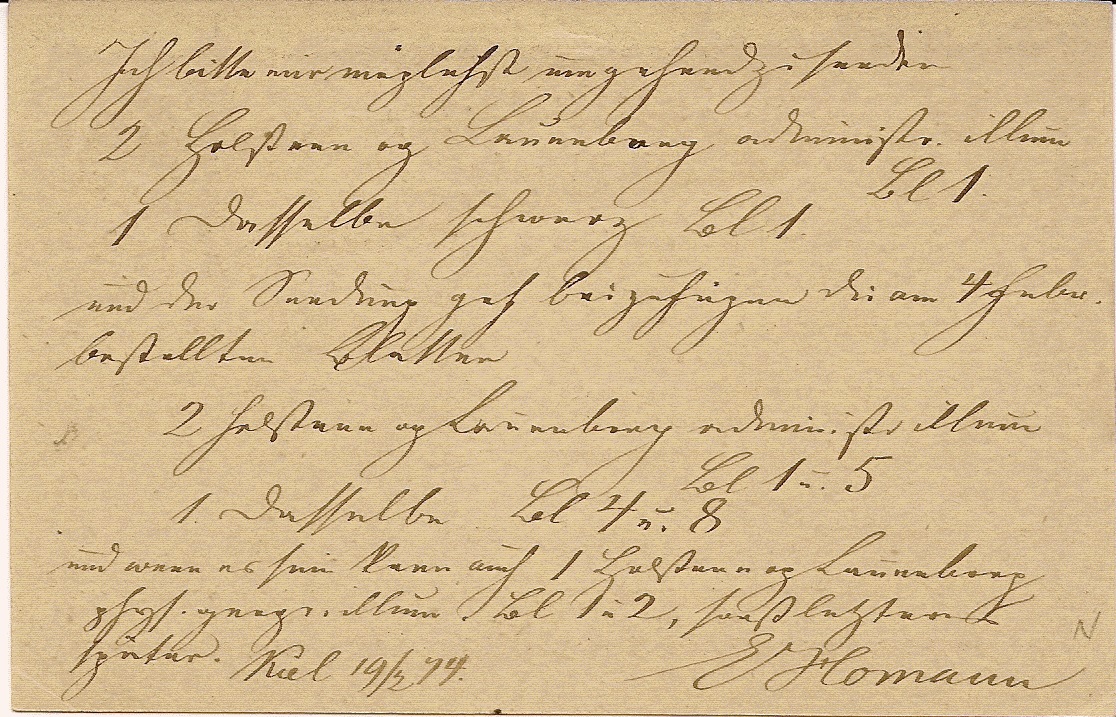 Ich bitte mir möglichst umgehend zu senden
2 Holsteen og Lauenborg administr. illum
Bl 1.
1 Dasselbe schwarz Bl 1.
und der Sendung gef beizufügen die am 4 Febr.
bestellten Blätter
2 Holsteen og Lauenborg administr illum
Bl 1 u. 5
1. Dasselbe Bl 4 u. 8
und wenn es sein kann auch 1 Holsteen og Lauenborg
phys. geogr. illum Bl 1 u 2, sonst letzteres
später. Kiel 19/2 74.
E Homann
N